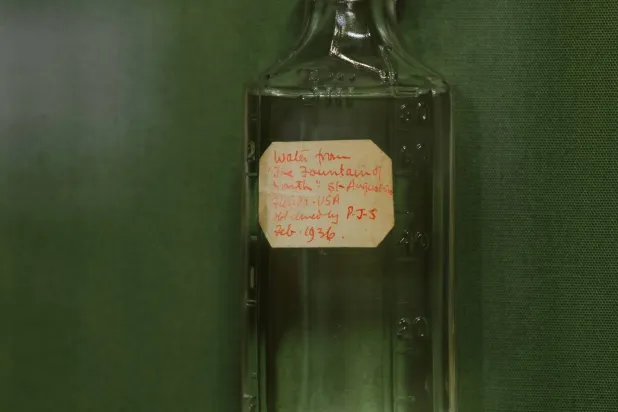 Water from
"The Fountain of
Youth" St-Augustine
Florida-USA
Obtained by P-J-S
Feb-1936.
80
40
20